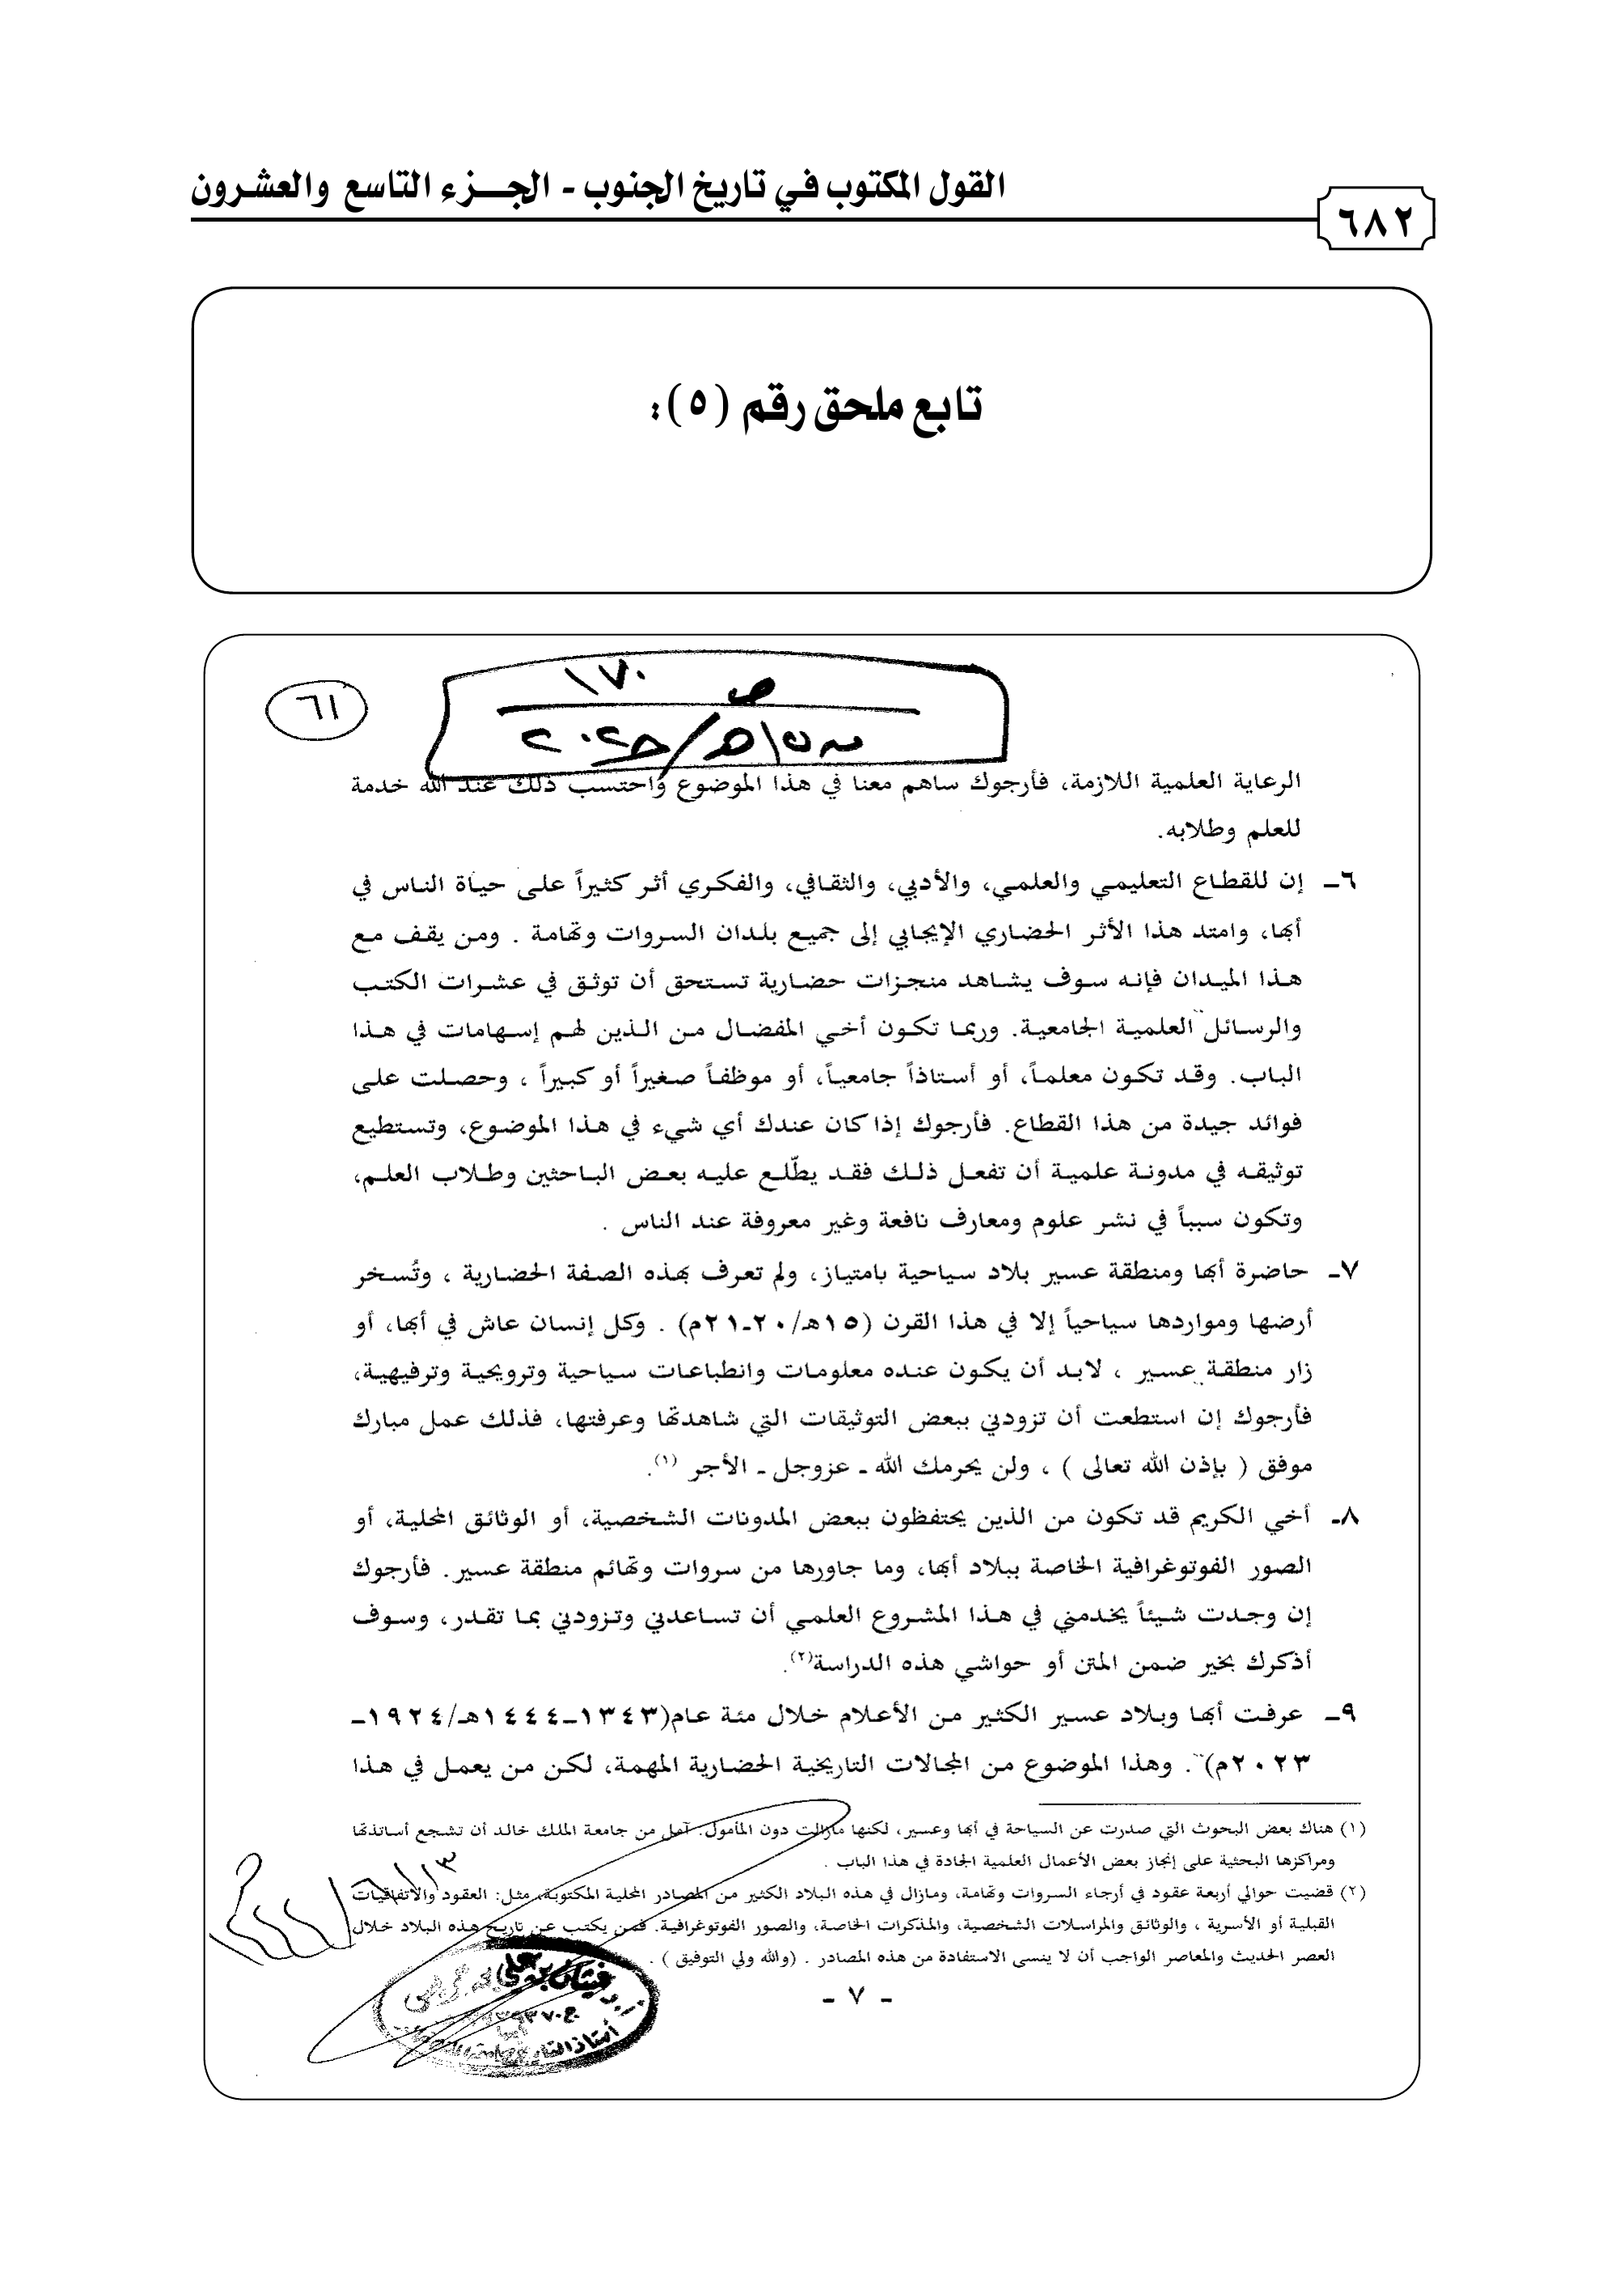 القول المكتوب في تاريخ الجنوب - الجـــزء التاسع والعشرون
٦٨٢
تابع ملحق رقم (٥):
٦١
١٧٠
ص
الرعاية العلمية اللازمة، فأرجوك ساهم معنا في هذا الموضوع واحتسب ذلك عند الله خدمة
للعلم وطلابه.
٦- إن للقطاع التعليمي والعلمي، والأدبي، والثقافي، والفكري أثر كثيراً على حياة الناس في
أبها، وامتد هذا الأثر الحضاري الإيجابي إلى جميع بلدان السروات وتهامة . ومن يقف مع
هذا الميدان فإنه سوف يشاهد منجزات حضارية تستحق أن توثق في عشرات الكتب
والرسائل العلمية الجامعية. وربما تكون أخي المفضال من الذين لهم إسهامات في هذا
الباب. وقد تكون معلماً، أو أستاذاً جامعياً، أو موظفاً صغيراً أو كبيراً ، وحصلت على
فوائد جيدة من هذا القطاع. فأرجوك إذا كان عندك أي شيء في هذا الموضوع، وتستطيع
توثيقه في مدونة علمية أن تفعل ذلك فقد يطّلع عليه بعض الباحثين وطلاب العلم،
وتكون سبباً في نشر علوم ومعارف نافعة وغير معروفة عند الناس .
٧- حاضرة أبها ومنطقة عسير بلاد سياحية بامتياز، ولم تعرف بهذه الصفة الحضارية ، وتُسخر
أرضها ومواردها سياحياً إلا في هذا القرن (١٥هـ/٢٠-٢١م) . وكل إنسان عاش في أبها، أو
زار منطقة عسير ، لابد أن يكون عنده معلومات وانطباعات سياحية وترويحية وترفيهية،
فأرجوك إن استطعت أن تزودني ببعض التوثيقات التي شاهدتها وعرفتها، فذلك عمل مبارك
موفق ( بإذن الله تعالى ) ، ولن يحرمك الله ـ عزوجل ـ الأجر (١).
٨- أخي الكريم قد تكون من الذين يحتفظون ببعض المدونات الشخصية، أو الوثائق المحلية، أو
الصور الفوتوغرافية الخاصة ببلاد أبها، وما جاورها من سروات وتهائم منطقة عسير. فأرجوك
إن وجدت شيئاً يخدمني في هذا المشروع العلمي أن تساعدني وتزودني بما تقدر، وسوف
أذكرك بخير ضمن المتن أو حواشي هذه الدراسة(٢).
٩- عرفت أبها وبلاد عسير الكثير من الأعلام خلال مئة عام(١٣٤٣-١٤٤٤هـ/١٩٢٤-
٢٠٢٣م). وهذا الموضوع من المجالات التاريخية الحضارية المهمة، لكن من يعمل في هذا
(١) هناك بعض البحوث التي صدرت عن السياحة في أبها وعسير، لكنها مازالت دون المأمول. آمل من جامعة الملك خالد أن تشجع أساتذتها
ومراكزها البحثية على إنجاز بعض الأعمال العلمية الجادة في هذا الباب .
(٢) قضيت حوالي أربعة عقود في أرجاء السروات وتهامة، ومازال في هذه البلاد الكثير من المصادر المحلية المكتوبة، مثل: العقود والاتفاقيات
القبلية أو الأسرية ، والوثائق والمراسلات الشخصية، والمذكرات الخاصة، والصور الفوتوغرافية. فمن يكتب عن تاريخ هذه البلاد خلال
العصر الحديث والمعاصر الواجب أن لا ينسى الاستفادة من هذه المصادر . (والله ولي التوفيق ) .
- ٧ -